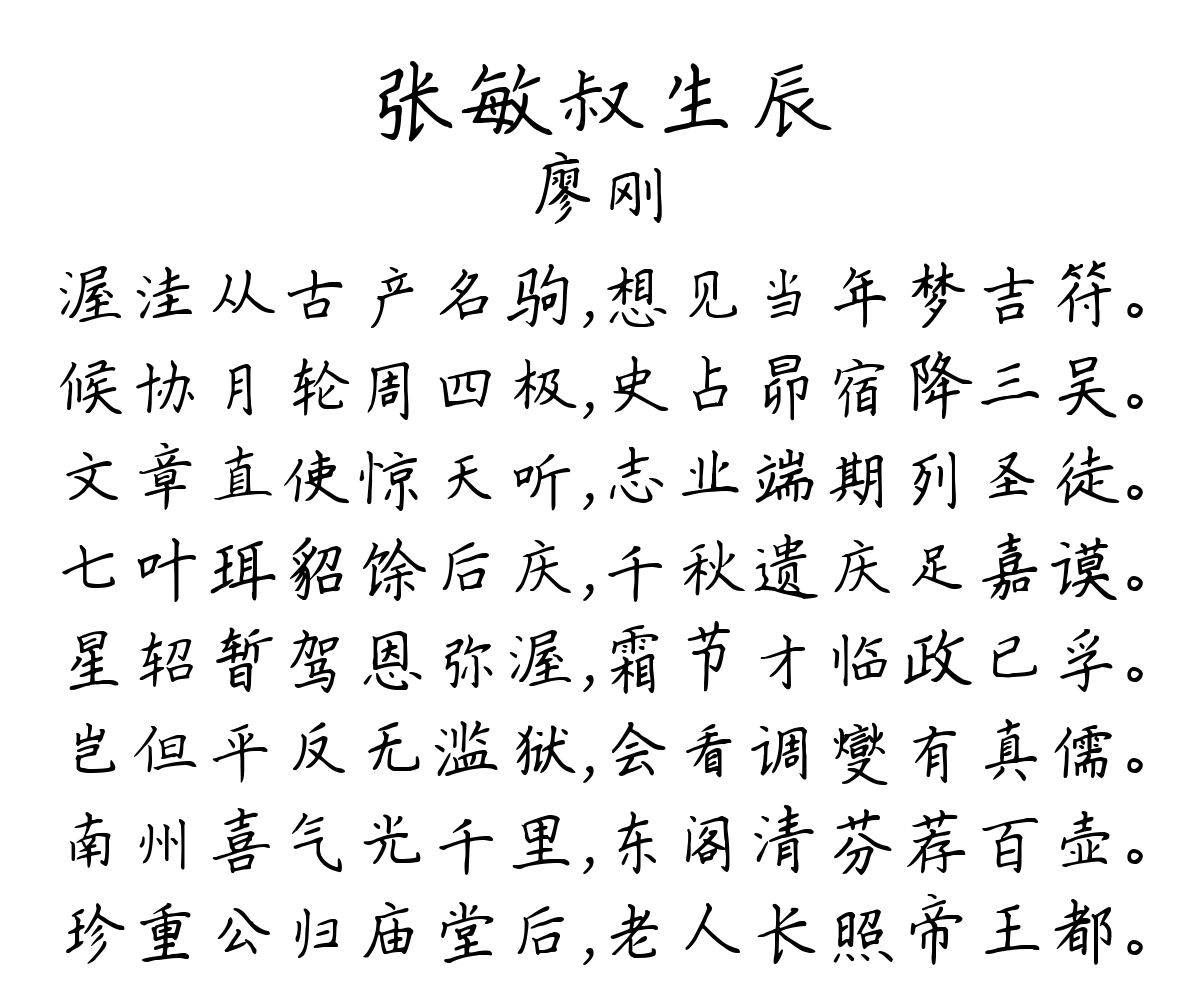 张敏叔生辰
廖刚
渥洼从古产名驹,想见当年梦吉符。
候协月轮周四极,史占昴宿降三吴。
文章直使惊天听,志业端期列圣徒。
七叶珥貂馀后庆,千秋遗庆足嘉谟。
星轺暂驾恩弥渥,霜节才临政已孚。
岂但平反无滥狱,会看调燮有真儒。
南州喜气光千里,东阁清芬荐百壶。
珍重公归庙堂后,老人长照帝王都。